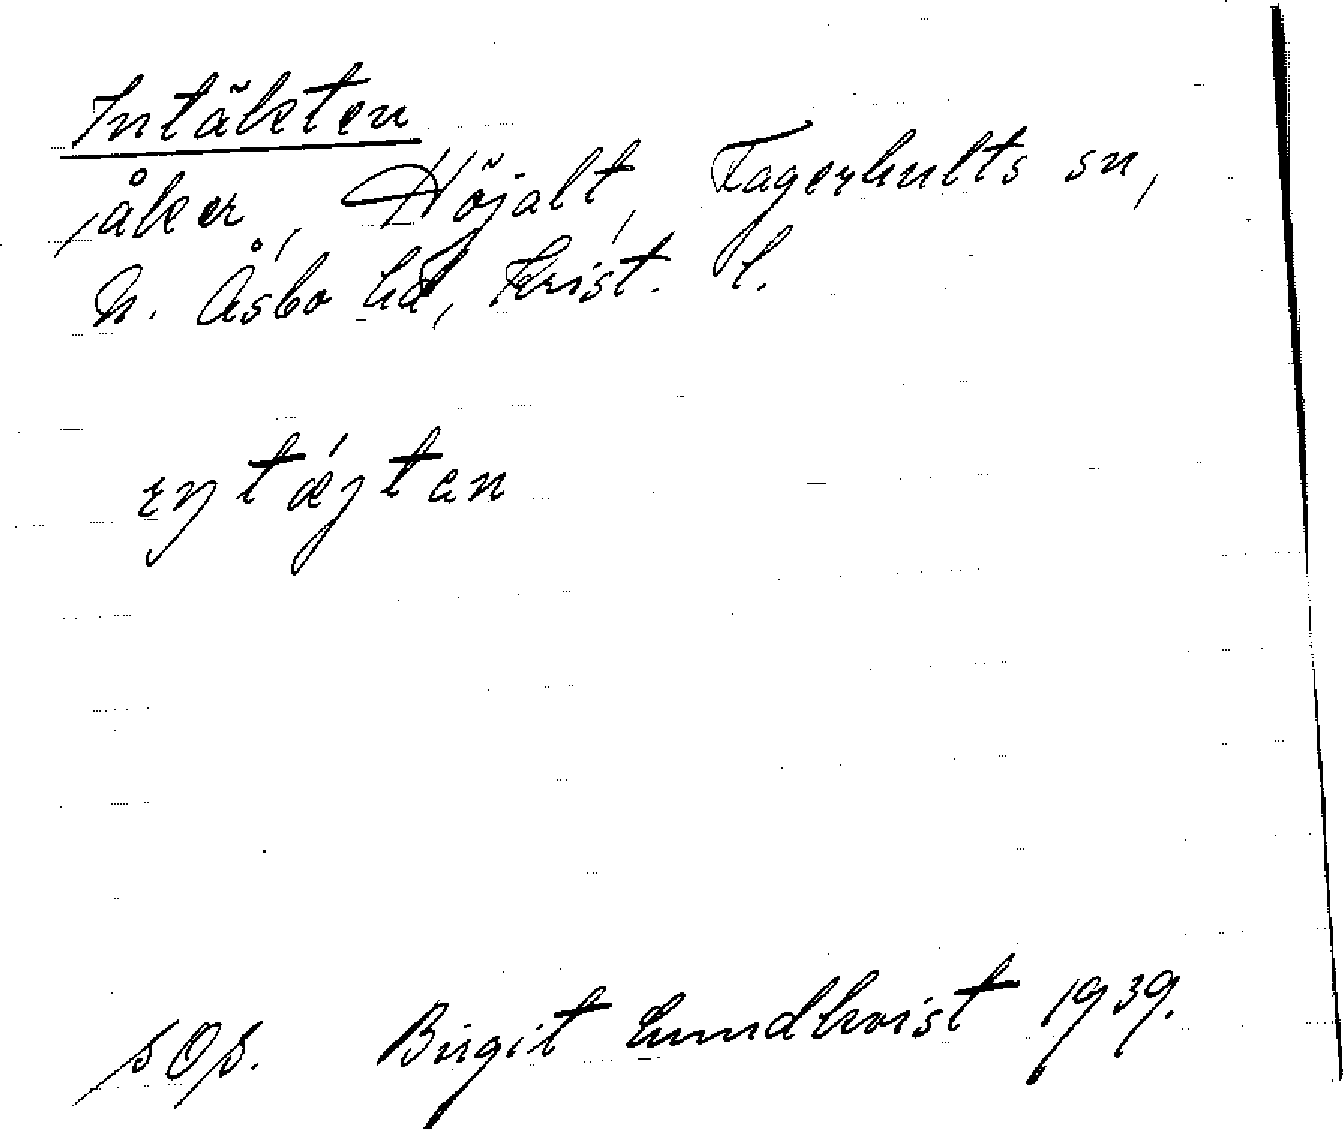 Intäkten
åker, Höjalt, Fagerhults sn,
N. Åsbo hd, Krist. l.
Birgit Lundkvist 1939.